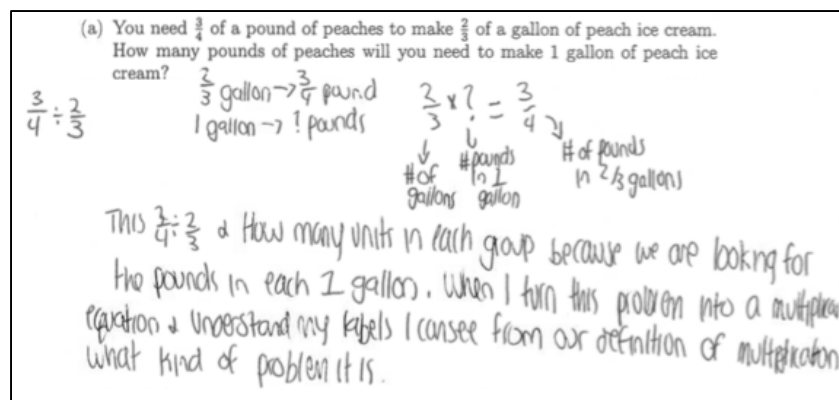 (a) You need 3/4 of a pound of peaches to make 2/3 of a gallon of peach ice cream.
How many pounds of peaches will you need to make 1 gallon of peach ice
cream?
3/4 ÷ 2/3
2/3 gallon -> 3/4 pound
1 gallon -> ? pounds
2/3 x ? = 3/4
# of gallons
# pounds in 1 gallon
# of pounds in 2/3 gallons
This 3/4 ÷ 2/3 How many units in each group because we are looking for
the pounds in each 1 gallon. When I turn this problem into a
equation & understand my labels I can see from our definition of multiplication
what kind of problem it is.